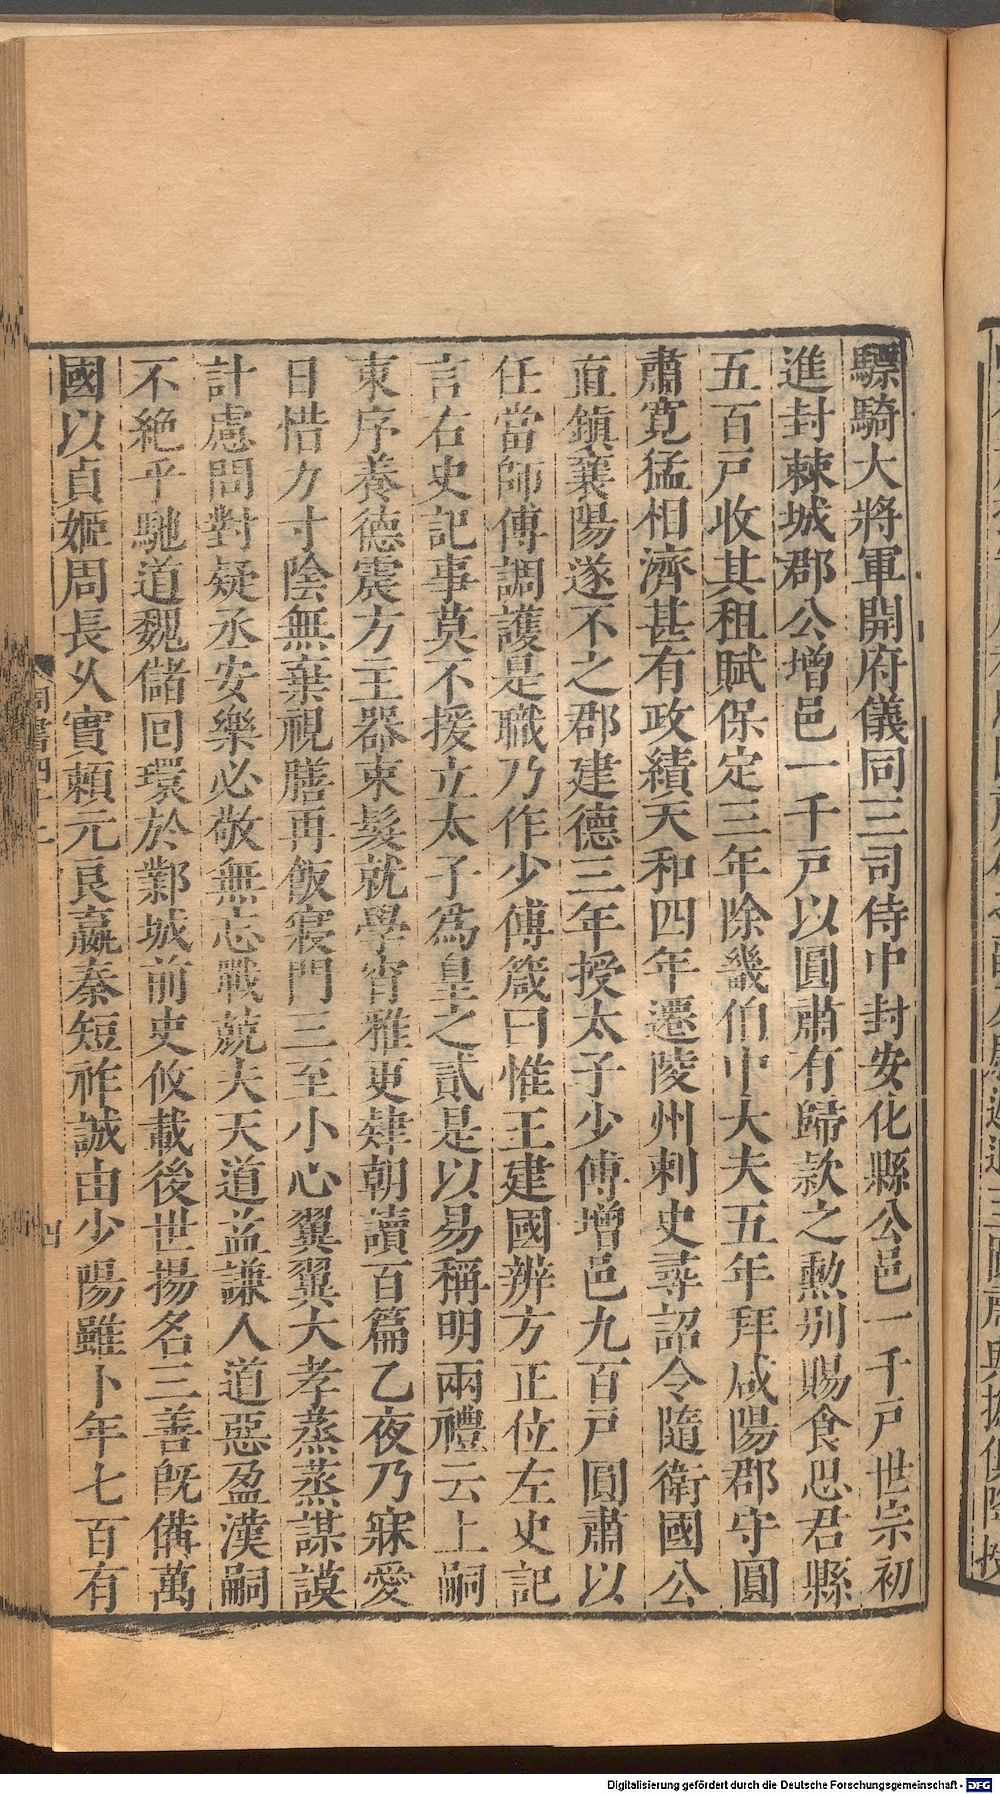 驃騎大將軍開府儀同三司侍中封安化縣公邑一千戸世宗初
進封棘城郡公增邑一千戸以圓肅有歸款之勲别賜食思君縣
五百戸收其租賦保定三年除畿伯中大夫五年拜咸陽郡守圓
肅寛猛相濟甚有政績天和四年遷陵州刺史尋詔令隨衛國公
直鎭襄陽遂不之郡建德三年授太子少傅增邑九百戸圓肅以
任當師傅調護是職乃作少傅箴曰惟王建國辨方正位左史記
言右史記事莫不援立太子爲皇之貳是以易稱明兩禮云上嗣
東序養德震方主器束髮就學宵雅更肄朝讀百篇乙夜乃寐愛
日惜力寸陰無棄視膳再飯寢門三至小心翼翼大孝蒸蒸謀謨
計慮問對疑丞安樂必敬無忘戰兢夫天道益謙人道惡盈漢嗣
不絶乎馳道魏儲回環於鄴城前史攸載後世揚名三善旣備萬
國以貞姬周長乆實賴元良嬴秦短祚誠由少陽雖卜年七百有
周書四十二
四
Digitalisierung gefördert durch die Deutsche Forschungsgemeinschaft - DFG